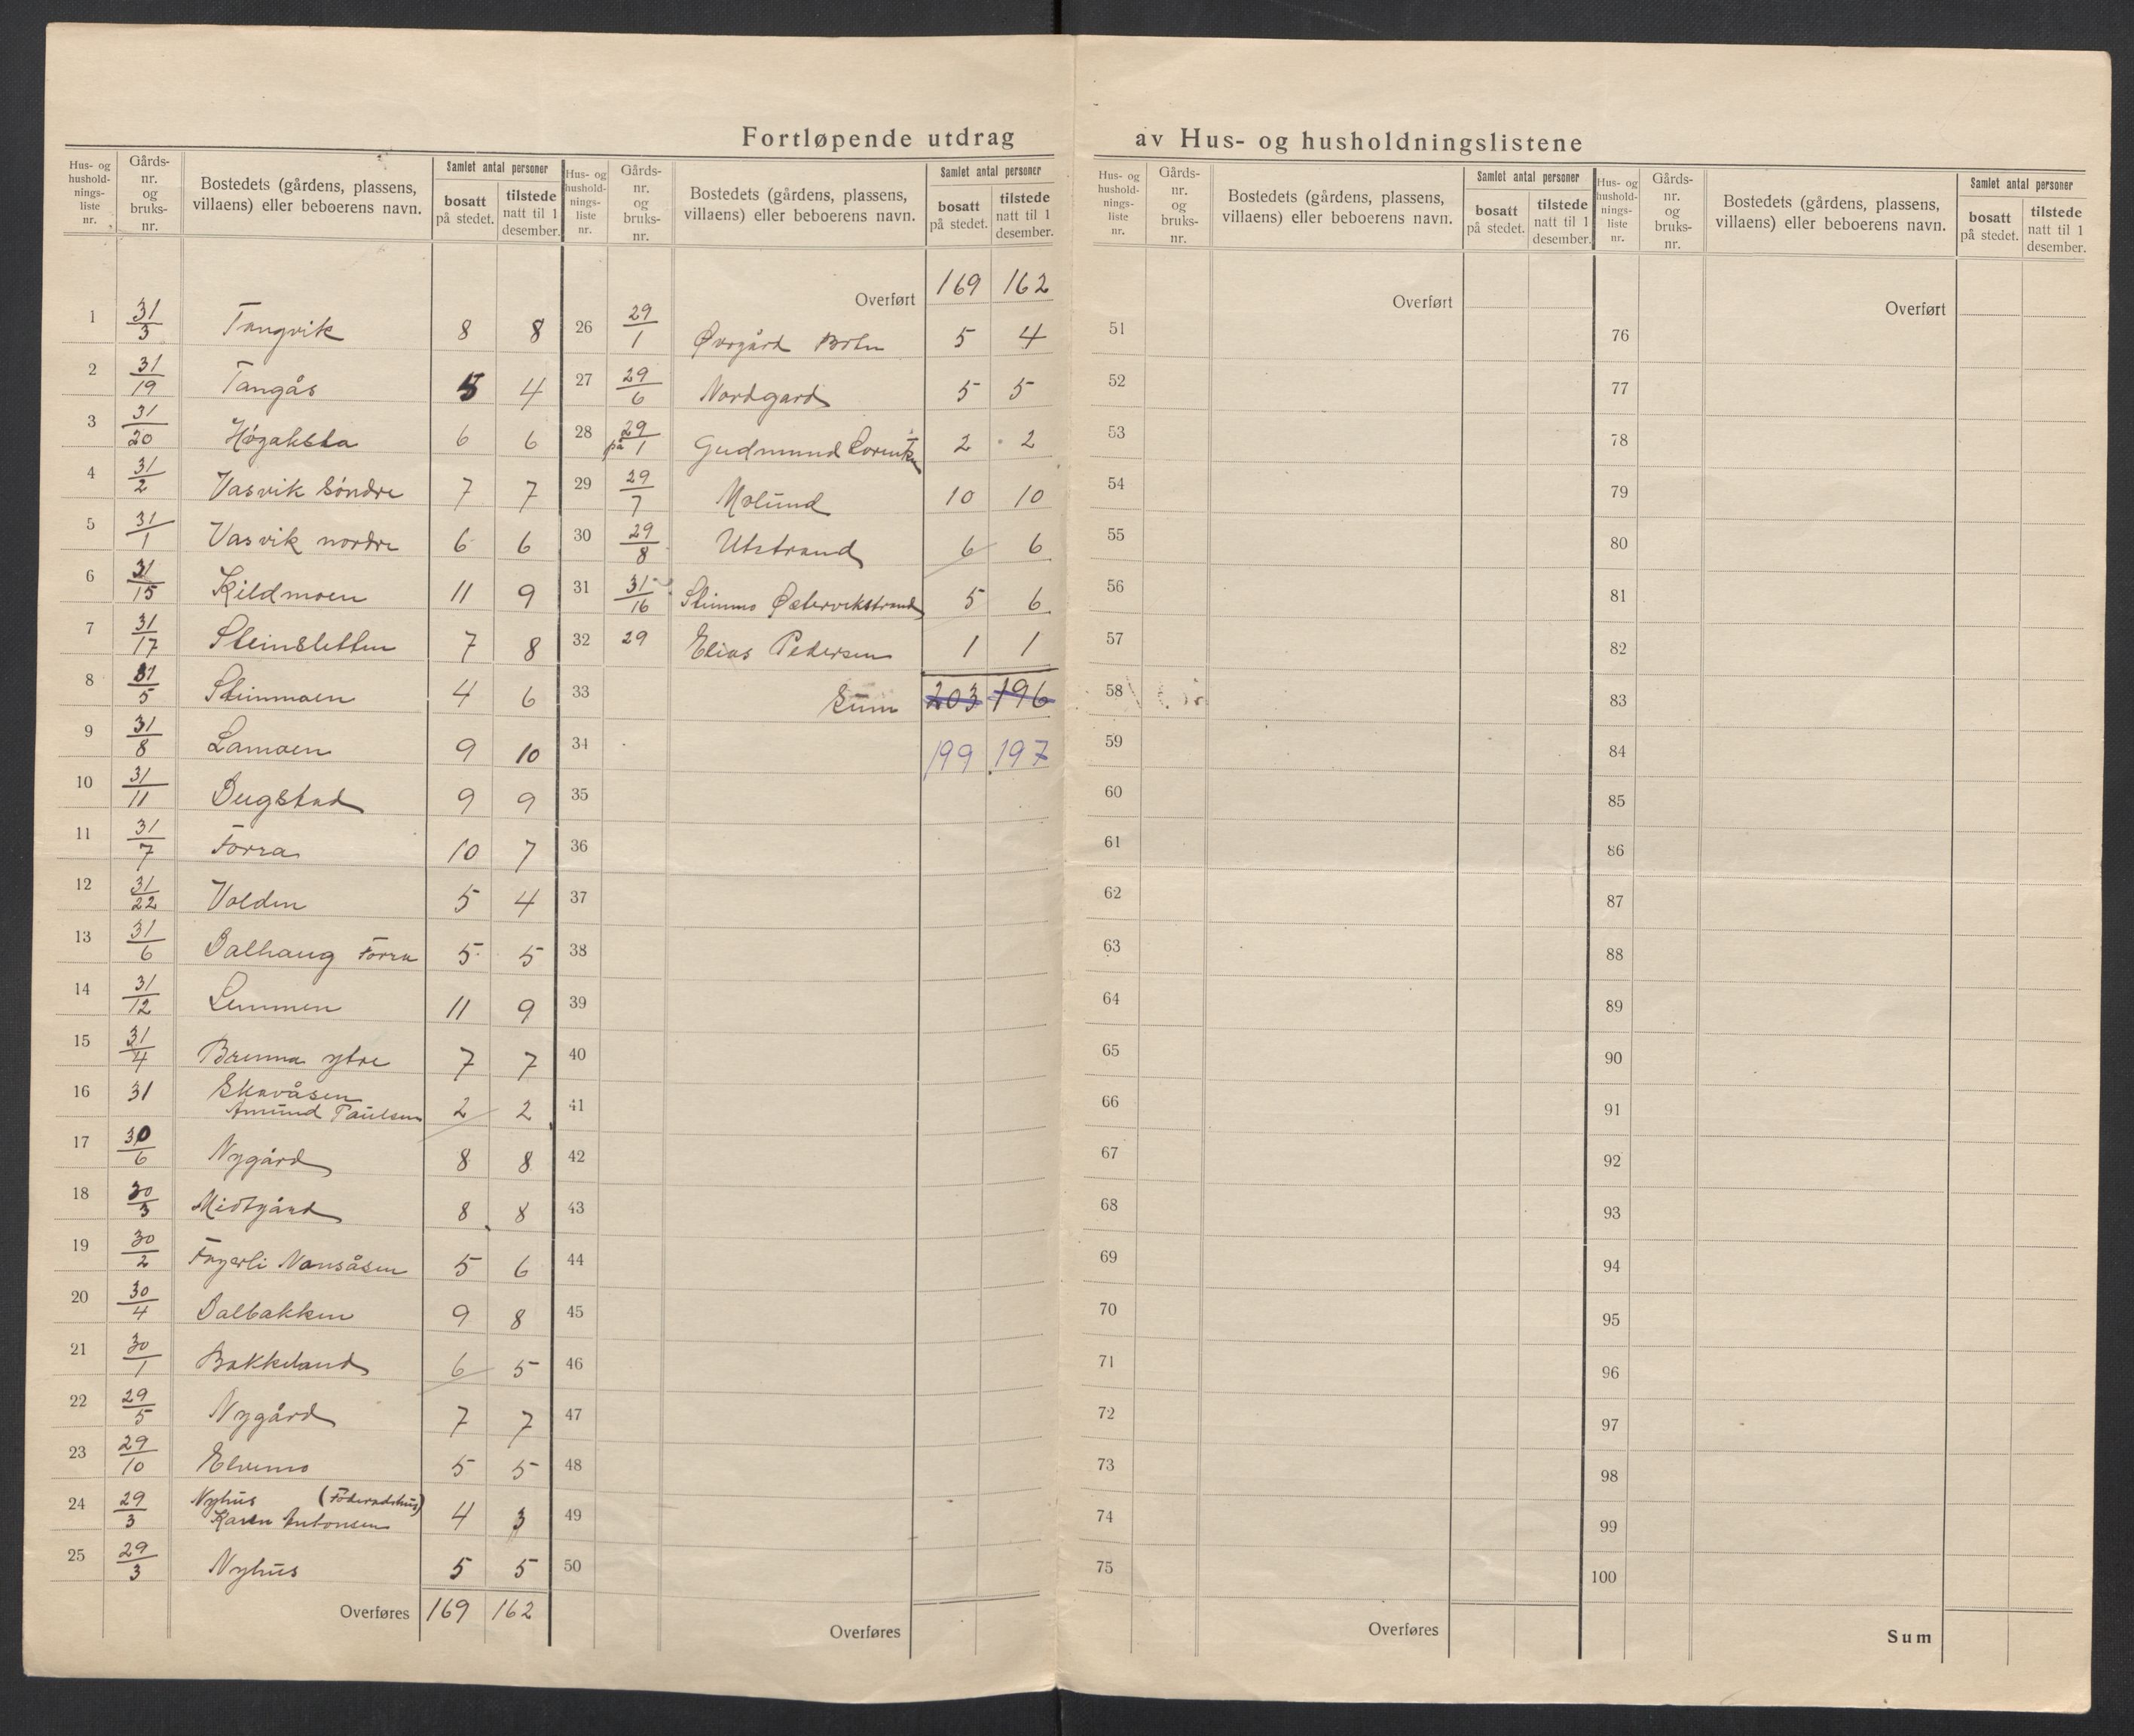 Fortløpende utdrag av Hus- og husholdningslistene
Hus- og husholdnings-liste nr. Gårds-nr. og bruks-nr. Bostedets (gårdens, plassens, villaens) eller beboerens navn. Samlet antal personer bosatt på stedet. tilstede natt til 1 desember.
1 31/3 Tangvik 8 8
2 31/19 Tangås 5 4
3 31/20 Høgaksla 6 6
4 31/2 Vasvik Söndre 7 7
5 31/1 Vasvik nordre 6 6
6 31/15 Kildmoen 11 9
7 31/17 Steinsletten 7 8
8 31/5 Steinmoen 4 6
9 31/8 Lamoen 9 10
10 31/11 Dugstad 9 9
11 31/7 Forra 10 7
12 31/22 Volden 5 4
13 31/6 Dalhaug Forra 5 5
14 31/12 Lemmen 11 9
15 31/4 Brenna ytre 7 7
16 31 Skavåsen
Amund Paulsen 2 2
17 30/6 Nygård 8 8
18 30/3 Midtgård 8 8
19 30/2 Fagerli Nonsåsen 5 6
20 30/4 Dalbakken 9 8
21 30/1 Bakkeland 6 5
22 29/5 Nygård 7 7
23 29/10 Elvemo 5 5
24 29/3 Nyhus (Föderadshus)
Karen Antonsen 4 3
25 29/3 Nyhus 5 5
Overføres 169 162
Hus- og husholdnings-liste nr. Gårds-nr. og bruks-nr. Bostedets (gårdens, plassens, villaens) eller beboerens navn. Samlet antal personer bosatt på stedet. tilstede natt til 1 desember.
Overført 169 162
26 29/1 Øvrgård Botn 5 4
27 29/6 Nordgard 5 5
28 på 29/1 Gudmund 2 2
29 29/7 Molund 10 10
30 29/8 Utstrand 6 6
31 31/16 5 6
32 29 Elias Pedersen 1 1
33 Sum 203 196
34 199 197
35
36
37
38
39
40
41
42
43
44
45
46
47
48
49
50
Overføres
Hus- og husholdnings-liste nr. Gårds-nr. og bruks-nr. Bostedets (gårdens, plassens, villaens) eller beboerens navn. Samlet antal personer bosatt på stedet. tilstede natt til 1 desember.
Overført
51
52
53
54
55
56
57
58
59
60
61
62
63
64
65
66
67
68
69
70
71
72
73
74
75
Overføres
Hus- og husholdnings-liste nr. Gårds-nr. og bruks-nr. Bostedets (gårdens, plassens, villaens) eller beboerens navn. Samlet antal personer bosatt på stedet. tilstede natt til 1 desember.
Overført
76
77
78
79
80
81
82
83
84
85
86
87
88
89
90
91
92
93
94
95
96
97
98
99
100
Sum